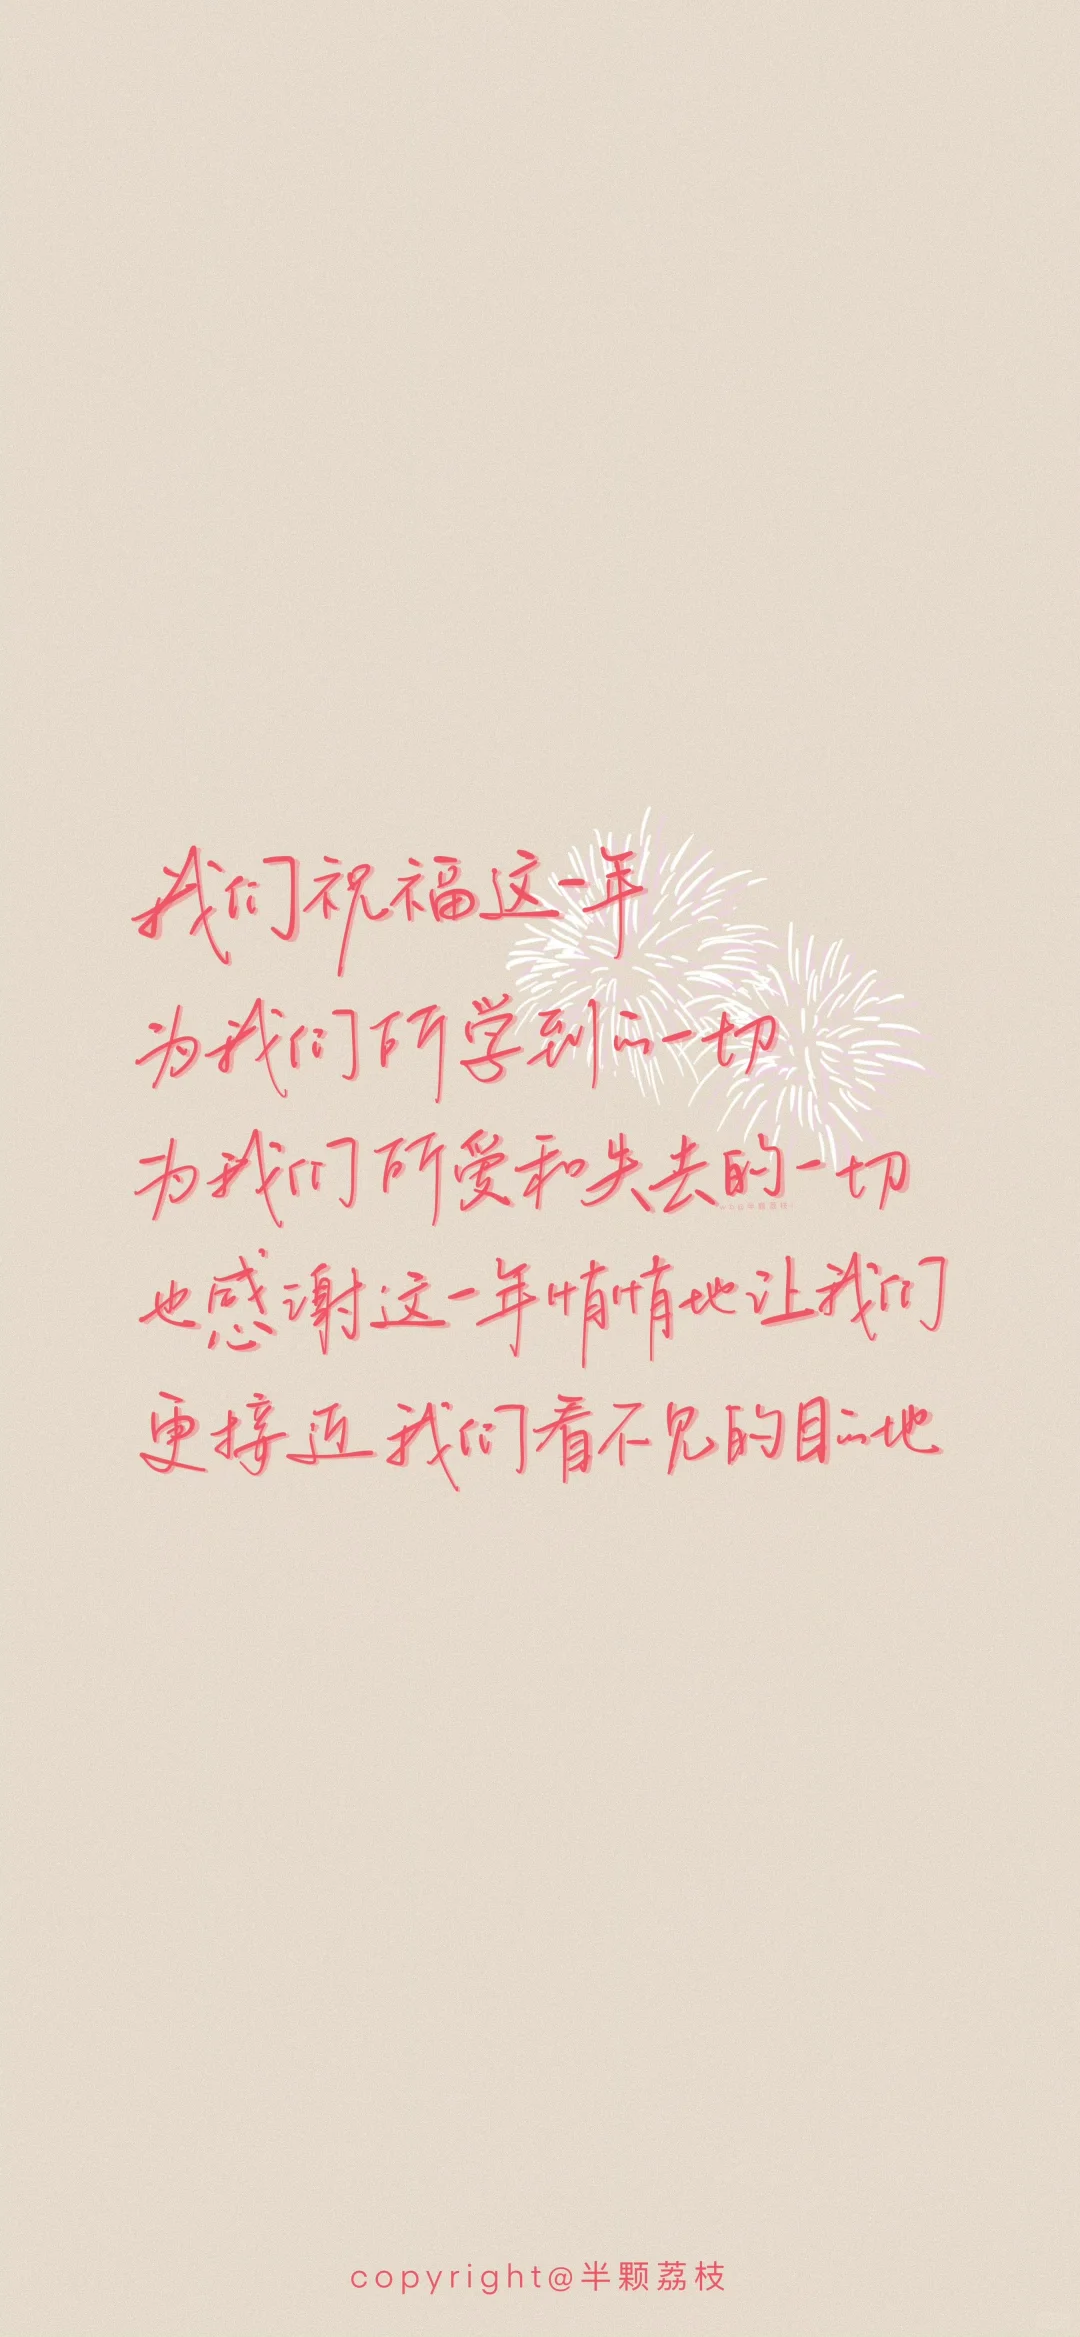 我们祝福这一年
为我们所学到的一切
为我们所爱和失去的一切
也感谢这一年悄悄地让我们
更接近我们看不见的目的地
copyright@半颗荔枝